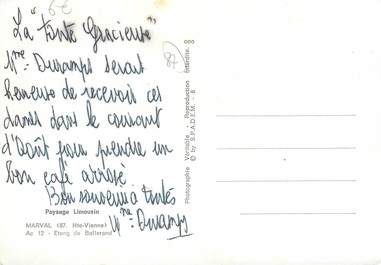 6€
La "Tante Gracieuse"
87
Mme Duramps serait
heureuse de recevoir ces
dames dans le courant
d'Août pour prendre un
bon café arrosé
Bon souvenir à toutes
Mme Duramps
Paysage Limousin
MARVAL (87. Hte-Vienne)
Au 12 - Etang de Ballerand
Photographie Véritable - Reproduction Interdite.
© by S.P.A.D.E.M. - 8